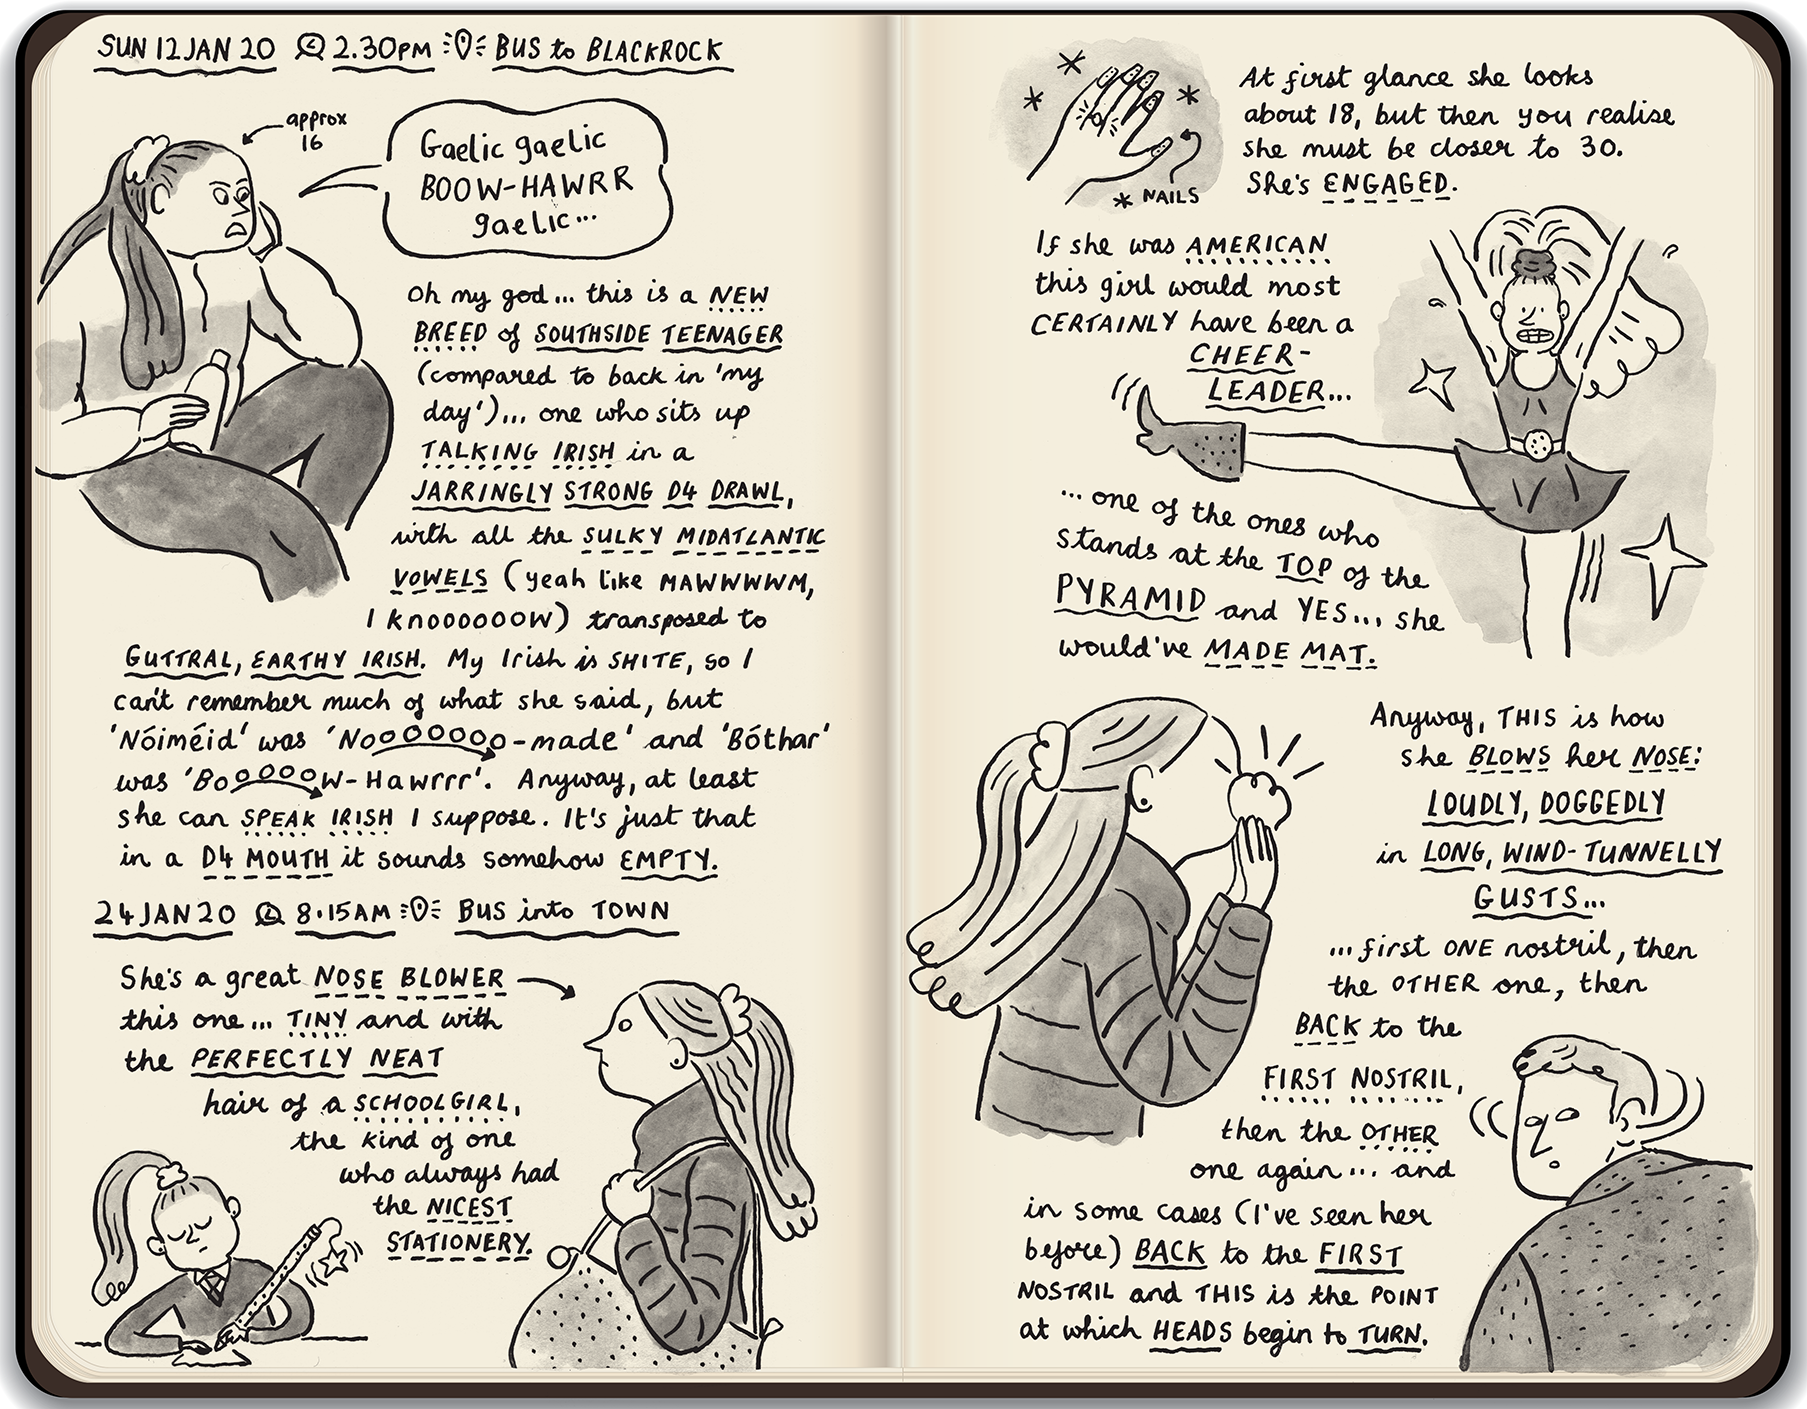 SUN 12 JAN 20 2.30PM BUS to BLACKROCK
approx
16
Gaelic gaelic
BOOW-HAWRR
gaelic...
Oh my god... this is a NEW
BREED of SOUTHSIDE TEENAGER
(compared to back in 'my
day')... one who sits up
TALKING IRISH in a
JARRINGLY STRONG D4 DRAWL,
with all the SULKY MIDATLANTIC
VOWELS (yeah like MAWWWWM,
I knooooooow) transposed to
GUTTRAL, EARTHY IRISH. My Irish is SHITE, so I
can't remember much of what she said, but
'Nóiméid' was 'Noooooooo-made' and 'Bóthar'
was 'BooooooW-Hawrrr'. Anyway, at least
she can SPEAK IRISH I suppose. It's just that
in a D4 MOUTH it sounds somehow EMPTY.
24 JAN 20 8.15AM BUS into TOWN
She's a great NOSE BLOWER
this one... TINY and with
the PERFECTLY NEAT
hair of a SCHOOLGIRL,
the kind of one
who always had
the NICEST
STATIONERY.
NAILS
At first glance she looks
about 18, but then you realise
she must be closer to 30.
She's ENGAGED.
If she was AMERICAN
this girl would most
CERTAINLY have been a
CHEER-
LEADER...
... one of the ones who
stands at the TOP of the
PYRAMID and YES... she
would've MADE MAT.
Anyway, THIS is how
she BLOWS her NOSE:
LOUDLY, DOGGEDLY
in LONG, WIND-TUNNELLY
GUSTS...
...first ONE nostril, then
the OTHER one, then
BACK to the
FIRST NOSTRIL,
then the OTHER
one again... and
in some cases (I've seen her
before) BACK to the FIRST
NOSTRIL and THIS is the POINT
at which HEADS begin to TURN.